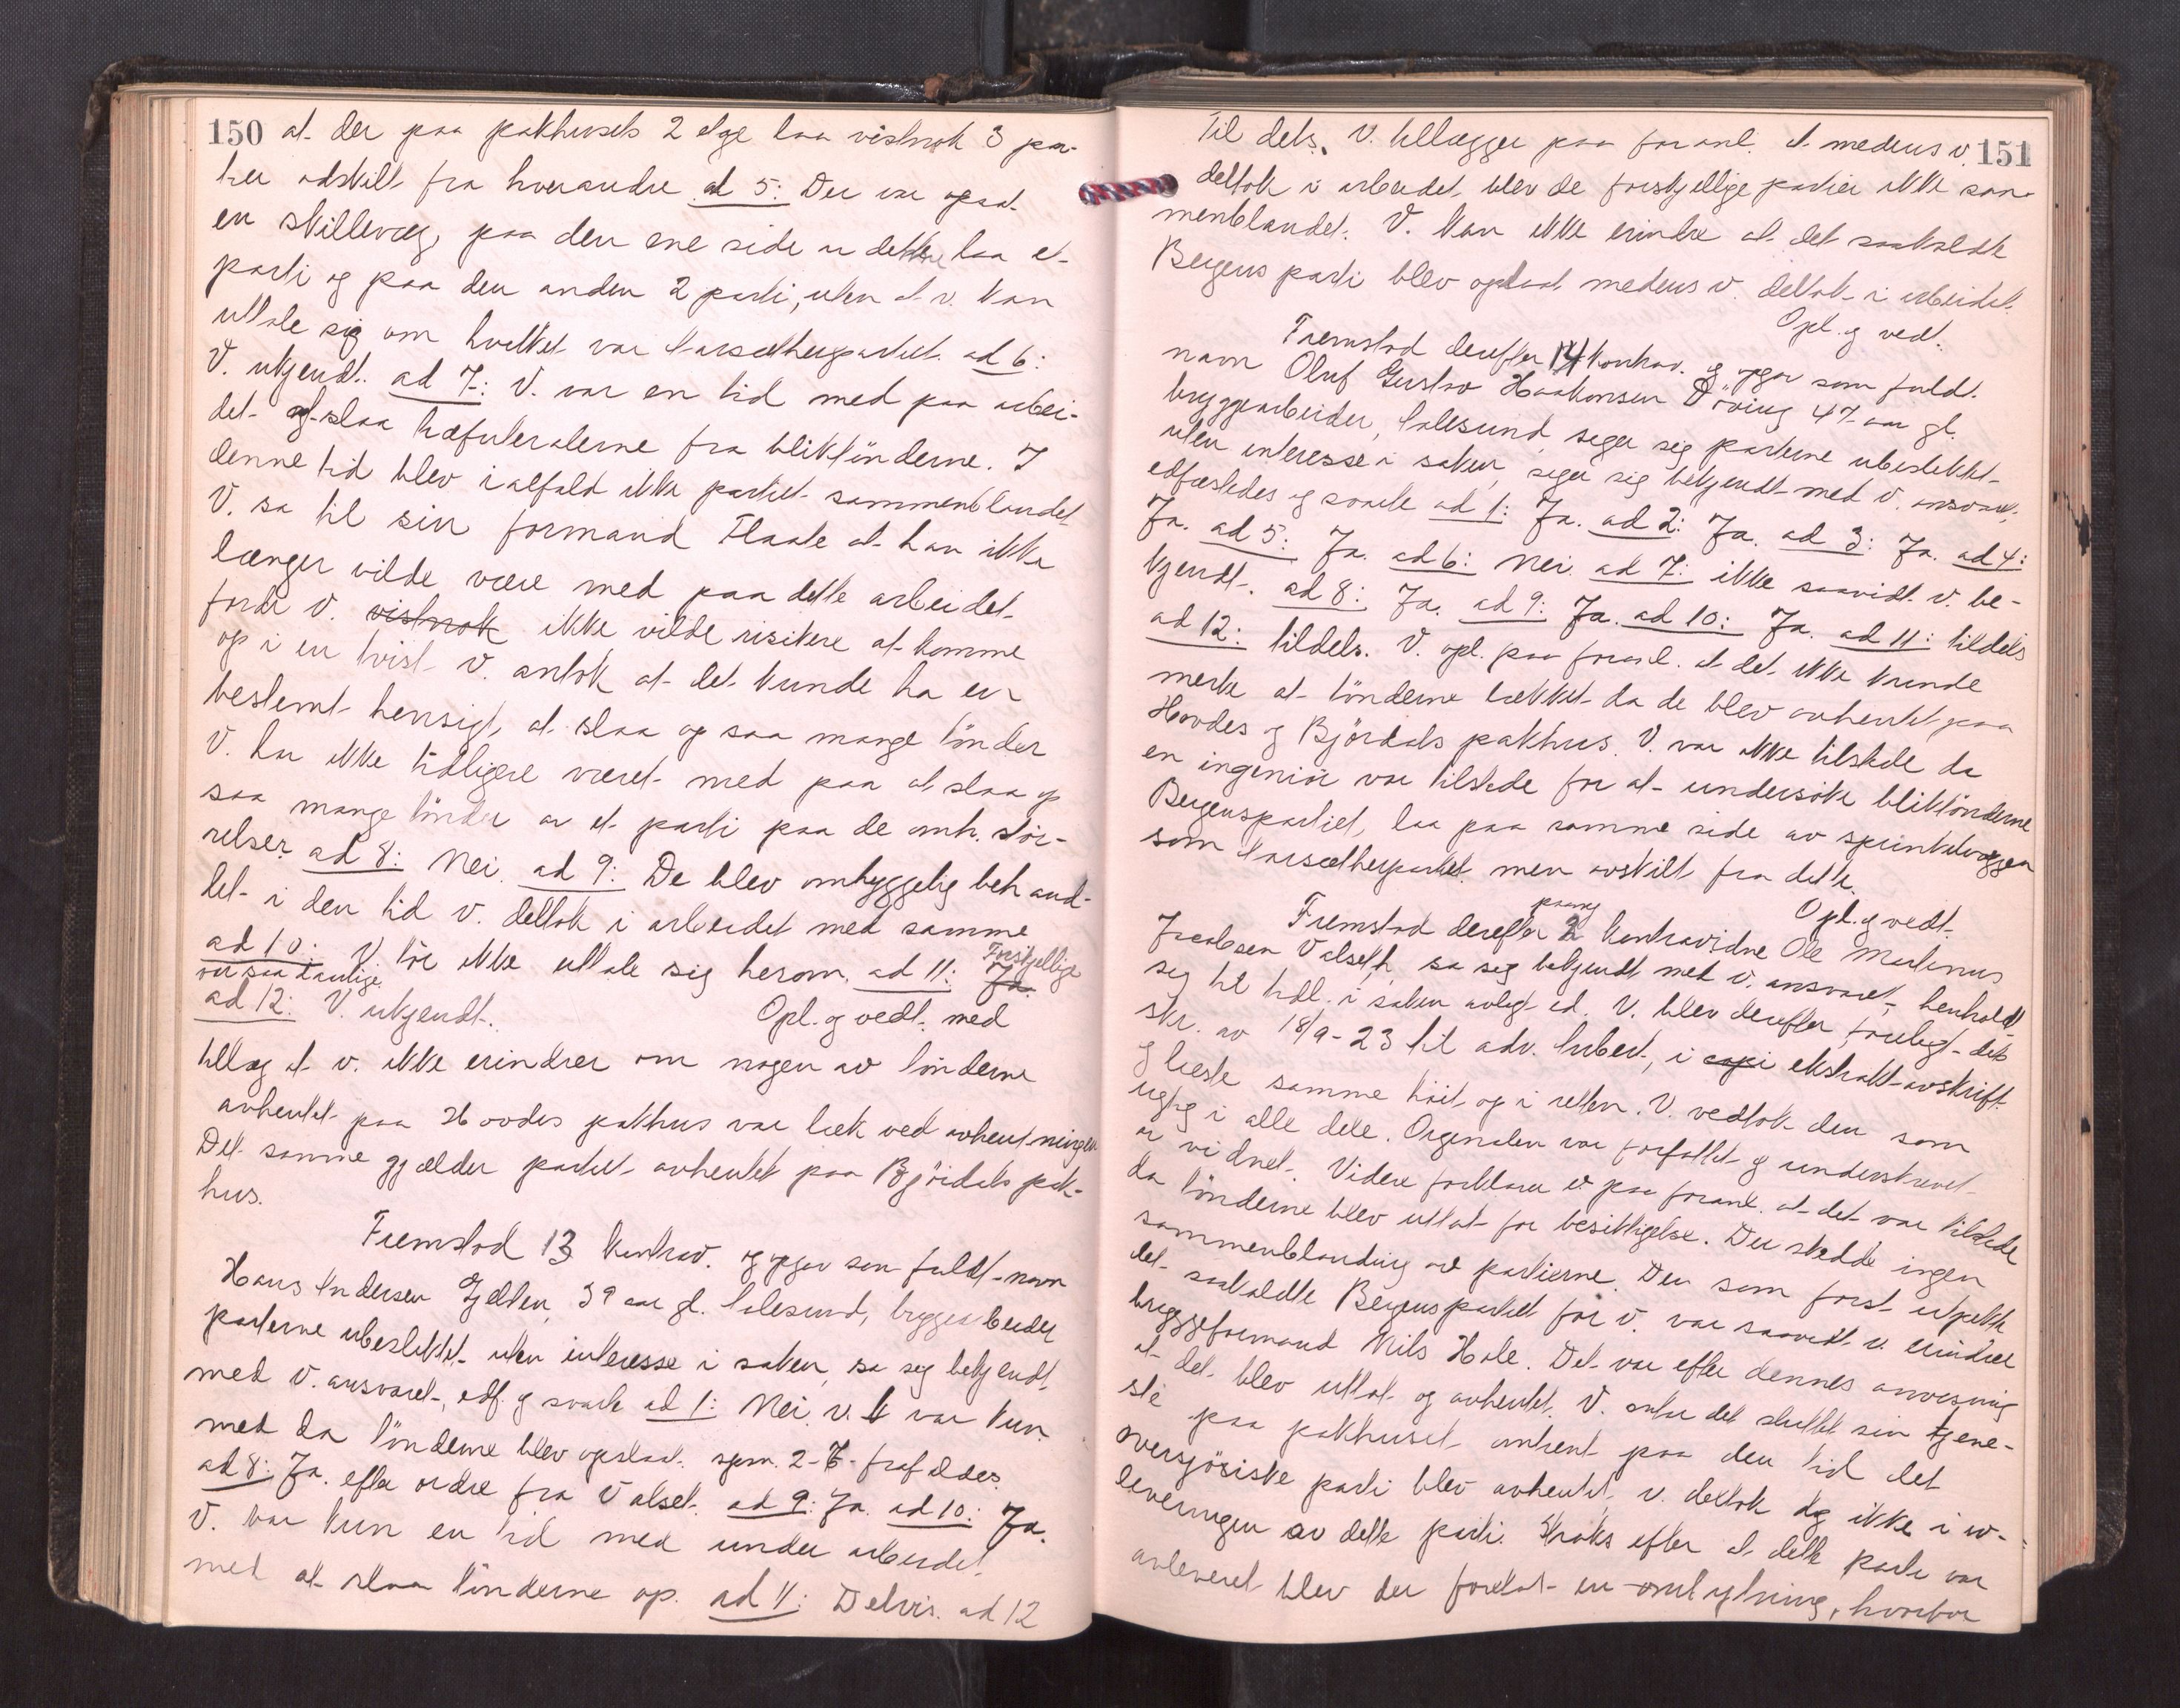 150 at der paa pakhusets 2 etge laa vistnok 3 par-
tier adskilt fra hverandre ad 5: Der var opsat
en skillevæg, paa den ene side av dette laa et
parti og paa den anden 2 parti, uten at v. kan
uttale sig om hvilket var Aarsætherpartiet. ad 6:
V. ukjendt. ad 7: V. var en tid med paa arbei-
det at slaa træfuteralerne fra bliktönderne. I
denne tid blev ialfald ikke partiet sammenblandet
V. sa til sin formand Flaate at han ikke
længer vilde være med paa dette arbeidet
fordi v. vistnok ikke vilde risikere at komme
op i en tvist V. antok at det kunde ha en
bestemt hensigt, at slaa op saa mange tönder
V. har ikke tidligere været med paa at slaa op
saa mange tönder av et parti paa de omh. stör-
relser ad 8: Nei. ad 9: De blev omhyggelig behand-
let i den tid v. deltok i arbeidet med samme
ad 10: V. tör ikke uttale sig herom. ad 11: Ja. Forskjellige
var saa daarlige.
ad 12: V. ukjendt. Opl. og vedt. med
tillæg at v. ikke erindrer om nogen av tönderne
avhentet paa Hovdes pakhus var læk ved avhentningen
Det samme gjælder partiet avhentet paa Björdals pak-
hus.
Fremstod 13 kontrav. og opgav som fuldt navn
Hans Andersen Gjelten, 39 aar gl. Aalesund, bryggearbeider
parterne ubeslektet uten interesse i saken, sa seg bekjendt
med v. ansvaret, edf. og svarte ad 1: Nei, v. var kun
med da tönderne blev opslaat. spm. 2-7 frafaldes.
ad 8: Ja. efter ordre fra Valset. ad 9: Ja. ad 10: Ja.
V. var kun en tid med under arbeidet
med at slaa tönderne op. ad 11: Delvis. ad 12
Til dels. V. tillægger paa foranl. at medens v. 151
deltok i arbeidet blev de forskjellige partier ikke sam-
menblandet. V. kan ikke erindre at det saakaldte
Bergens parti blev opslaat medens v. deltok i arbeidet.
Opl. og vedt.
Fremstod derefter 14 kontrav. og opgav som fuldt
navn Oluf Gustav Haakonsen Döving 47 aar gl.
bryggearbeider, Aalesund, seger seg parterne ubeslektet
uten interesse i saken, seger sig bekjendt med v. ansvaret,
edfæstedes og svarte ad 1: Ja. ad 2: Ja. ad 3: Ja. ad 4:
Ja. ad 5: Ja. ad 6: Nei. ad 7: ikke saavidt v. be-
kjendt. ad 8: Ja. ad 9: Ja. ad 10: Ja. ad 11: tildels
ad 12: tildels. V. opl. paa foranl. at det ikke kunde
merke at tönderne lækket da de blev avhentet paa
Hovdes og Björdals pakhus. V. var ikke tilstede da
en ingeniör var tilstede for at undersöke bliktönderne
Bergenspartiet, laa paa samme side av sprinkelvæggen
som Aarsætherpartiet men avskilt fra dette.
Opl. og vedt.
Fremstod derefter paany 2 kontravidne Ole Martinus
Jacobsen Valseth, sa seg bekjendt med v. ansvaret, henholdt
seg til tidl. i saken avlagt ed. V. blev derefter forelagt det
skr. av 18/9-23 til adv. Aubert, i copi ekstrakt-avskrift
og læste samme höit op i retten. V. vedtok den som
rigtig i alle dele. Orginalen var forfattet og underskrevet
av vidnet. Videre forklarer v. paa foranl. at det var tilstede
da tönderne blev uttat for besiktigelse. Der skedde ingen
sammenblanding av partierne. Den som först utpekte
det saakaldte Bergenspartiet for v. var saavidt v. erindrer
bryggeformand Nils Hole. Det var efter dennes anvisning
at det blev uttat og avhentet. V. antar det sluttet sin tjene-
ste paa pakhuset omtrent paa den tid det
oversjöiske parti blev avhentet, v. deltok dog ikke i av-
leveringen av dette parti. Straks efter at dette parti var
avleveret blev der foretat en omflytning, hvorfor